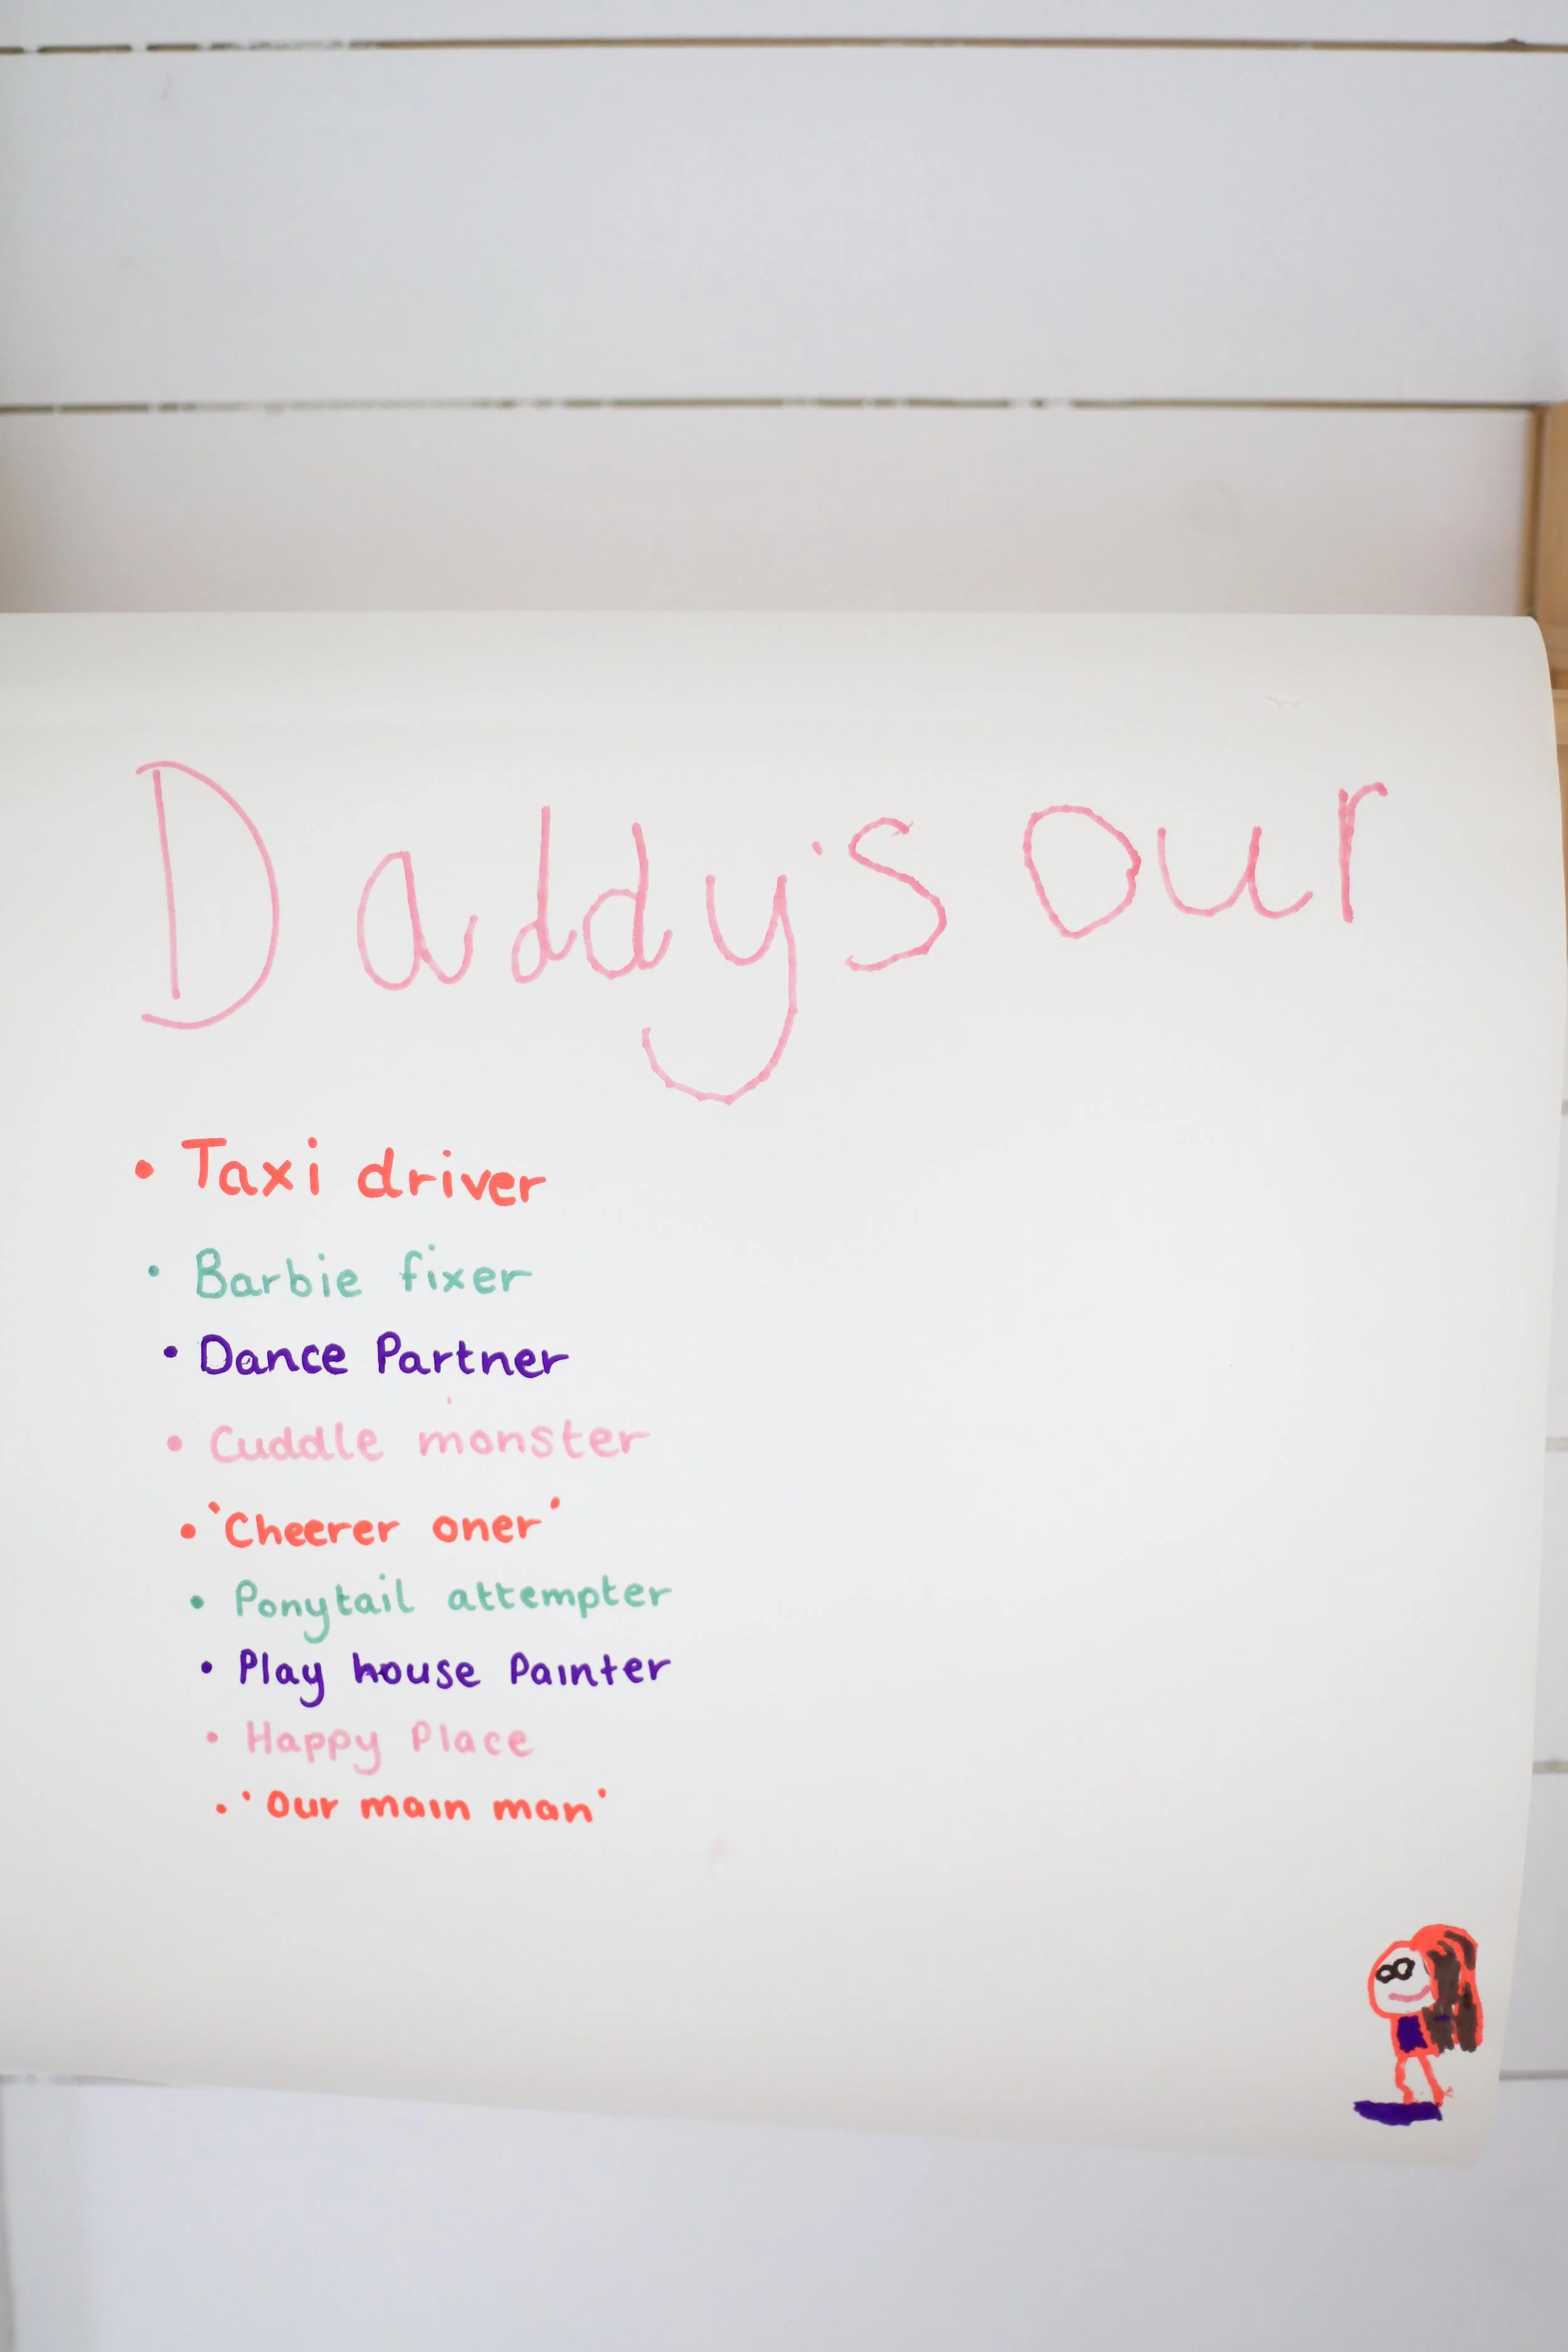 Daddy's our
• Taxi driver
• Barbie fixer
• Dance Partner
• Cuddle monster
• 'Cheerer oner'
• Ponytail attempter
• Play house Painter
• Happy Place
• 'Our main man'